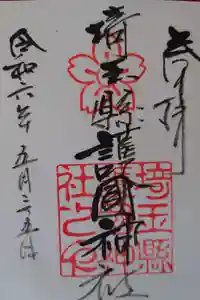 奉拝
埼玉縣護國神社
令和六年五月二五日
埼玉縣
社之印